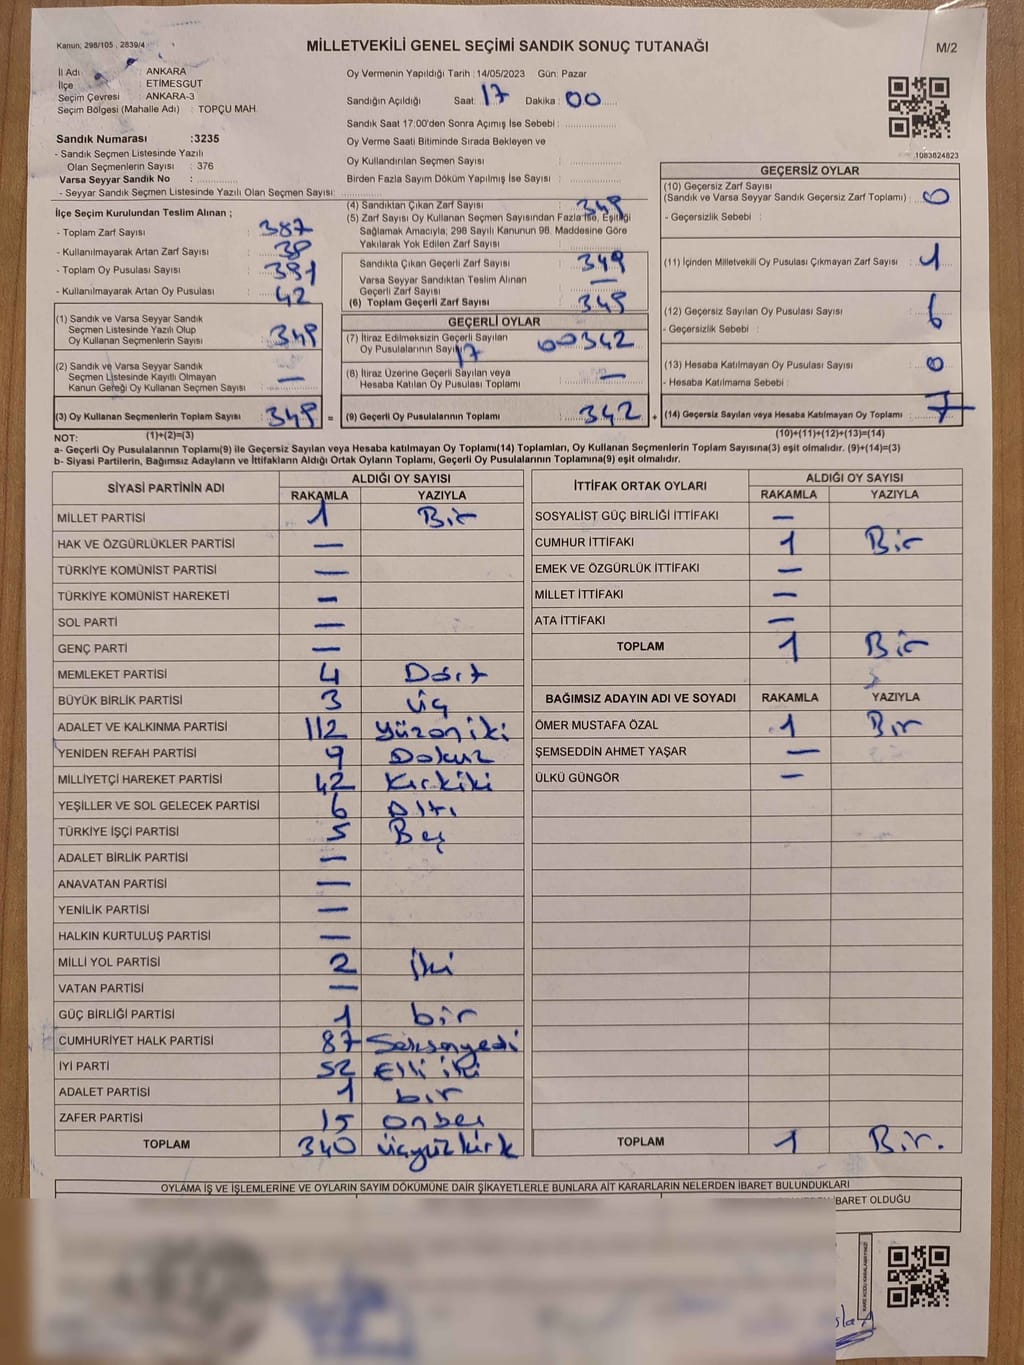 Kanun: 298/105 , 2839/4
MİLLETVEKİLİ GENEL SEÇİMİ SANDIK SONUÇ TUTANAĞI
M/2
İl Adı : ANKARA
İlçe : ETİMESGUT
Seçim Çevresi : ANKARA-3
Seçim Bölgesi (Mahalle Adı) : TOPÇU MAH.
Sandık Numarası :3235
- Sandık Seçmen Listesinde Yazılı
Olan Seçmenlerin Sayısı : 376
Varsa Seyyar Sandık No :
- Seyyar Sandık Seçmen Listesinde Yazılı Olan Seçmen Sayısı:
Oy Vermenin Yapıldığı Tarih : 14/05/2023 Gün: Pazar
Sandığın Açıldığı Saat: 17 Dakika : 00
Sandık Saat 17:00'den Sonra Açımış İse Sebebi :
Oy Verme Saati Bitiminde Sırada Bekleyen ve
Oy Kullandırılan Seçmen Sayısı :
Birden Fazla Sayım Döküm Yapılmış İse Sayısı :
1083824823
İlçe Seçim Kurulundan Teslim Alınan ;
- Toplam Zarf Sayısı : 387
- Kullanılmayarak Artan Zarf Sayısı : 38
- Toplam Oy Pusulası Sayısı : 391
- Kullanılmayarak Artan Oy Pusulası : 42
(1) Sandık ve Varsa Seyyar Sandık
Seçmen Listesinde Yazılı Olup
Oy Kullanan Seçmenlerin Sayısı : 349
(2) Sandık ve Varsa Seyyar Sandık
Seçmen Listesinde Kayıtlı Olmayan
Kanun Gereği Oy Kullanan Seçmen Sayısı : —
(3) Oy Kullanan Seçmenlerin Toplam Sayısı : 349 =
(4) Sandıktan Çıkan Zarf Sayısı : 349
(5) Zarf Sayısı Oy Kullanan Seçmen Sayısından Fazla İse, Eşitliği
Sağlamak Amacıyla, 298 Sayılı Kanunun 98. Maddesine Göre
Yakılarak Yok Edilen Zarf Sayısı :
Sandıkta Çıkan Geçerli Zarf Sayısı : 349
Varsa Seyyar Sandıktan Teslim Alınan
Geçerli Zarf Sayısı : —
(6) Toplam Geçerli Zarf Sayısı : 349
GEÇERLİ OYLAR
(7) İtiraz Edilmeksizin Geçerli Sayılan
Oy Pusulalarının Sayısı 17 00342
(8) İtiraz Üzerine Geçerli Sayılan veya
Hesaba Katılan Oy Pusulası Toplamı : —
(9) Geçerli Oy Pusulalarının Toplamı : 342 +
GEÇERSİZ OYLAR
(10) Geçersiz Zarf Sayısı
(Sandık ve Varsa Seyyar Sandık Geçersiz Zarf Toplamı) : 0
- Geçersizlik Sebebi :
(11) İçinden Milletvekili Oy Pusulası Çıkmayan Zarf Sayısı : 1
(12) Geçersiz Sayılan Oy Pusulası Sayısı : 6
- Geçersizlik Sebebi :
(13) Hesaba Katılmayan Oy Pusulası Sayısı : 0
- Hesaba Katılmama Sebebi :
(14) Geçersiz Sayılan veya Hesaba Katılmayan Oy Toplamı : 7
NOT: (1)+(2)=(3) (10)+(11)+(12)+(13)=(14)
a- Geçerli Oy Pusulalarının Toplamı(9) ile Geçersiz Sayılan veya Hesaba katılmayan Oy Toplamı(14) Toplamları, Oy Kullanan Seçmenlerin Toplam Sayısına(3) eşit olmalıdır. (9)+(14)=(3)
b- Siyasi Partilerin, Bağımsız Adayların ve İttifakların Aldığı Ortak Oyların Toplamı, Geçerli Oy Pusulalarının Toplamına(9) eşit olmalıdır.
SİYASİ PARTİNİN ADI ALDIĞI OY SAYISI
RAKAMLA YAZIYLA
MİLLET PARTİSİ 1 Bir
HAK VE ÖZGÜRLÜKLER PARTİSİ —
TÜRKİYE KOMÜNİST PARTİSİ —
TÜRKİYE KOMÜNİST HAREKETİ —
SOL PARTİ —
GENÇ PARTİ —
MEMLEKET PARTİSİ 4 Dört
BÜYÜK BİRLİK PARTİSİ 3 üç
ADALET VE KALKINMA PARTİSİ 112 yüzoniki
YENİDEN REFAH PARTİSİ 9 Dokuz
MİLLİYETÇİ HAREKET PARTİSİ 42 Kırkiki
YEŞİLLER VE SOL GELECEK PARTİSİ 6 Altı
TÜRKİYE İŞÇİ PARTİSİ 5 Beş
ADALET BİRLİK PARTİSİ —
ANAVATAN PARTİSİ —
YENİLİK PARTİSİ —
HALKIN KURTULUŞ PARTİSİ —
MİLLİ YOL PARTİSİ 2 İki
VATAN PARTİSİ —
GÜÇ BİRLİĞİ PARTİSİ 1 bir
CUMHURİYET HALK PARTİSİ 87 Seksenyedi
İYİ PARTİ 52 Elli iki
ADALET PARTİSİ 1 bir
ZAFER PARTİSİ 15 onbeş
TOPLAM 340 üçyüzkırk
İTTİFAK ORTAK OYLARI ALDIĞI OY SAYISI
RAKAMLA YAZIYLA
SOSYALİST GÜÇ BİRLİĞİ İTTİFAKI —
CUMHUR İTTİFAKI 1 Bir
EMEK VE ÖZGÜRLÜK İTTİFAKI —
MİLLET İTTİFAKI —
ATA İTTİFAKI —
TOPLAM 1 Bir
BAĞIMSIZ ADAYIN ADI VE SOYADI RAKAMLA YAZIYLA
ÖMER MUSTAFA ÖZAL 1 Bir
ŞEMSEDDİN AHMET YAŞAR —
ÜLKÜ GÜNGÖR —
TOPLAM 1 Bir.
OYLAMA İŞ VE İŞLEMLERİNE VE OYLARIN SAYIM DÖKÜMÜNE DAİR ŞİKAYETLERLE BUNLARA AİT KARARLARIN NELERDEN İBARET BULUNDUKLARI
İBARET OLDUĞU